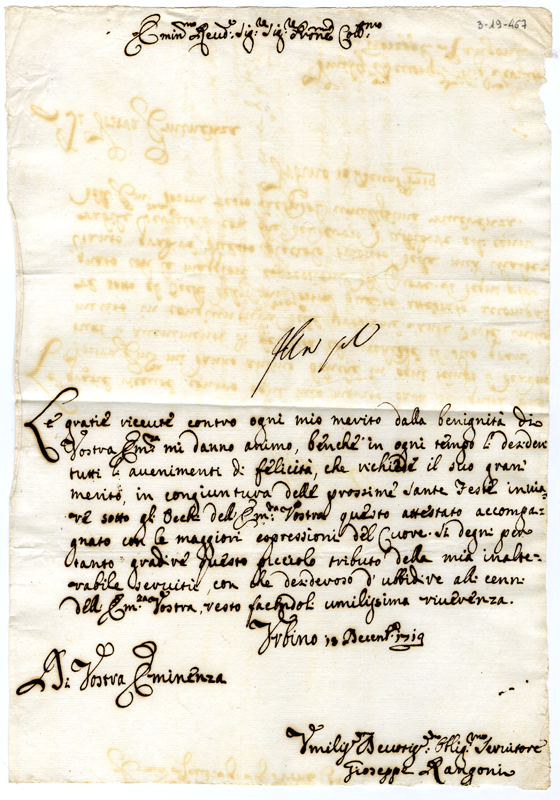 3-19-467
Emin.mo Reud.o Sig.r Sig.r Prone Coll.mo
Le gratie riceute contro ogni mio merito dalla benignità di
Vostra Em.za mi danno animo, benche in ogni tempo li desideri
tutti li avenimenti di felicità, che richiede il suo gran
merito, in congiuntura delle prossime Sante Feste inuia-
re sotto gl'Occhi dell'Em.za Vostra questo attestato accompa-
gnato con le maggiori espressioni del Cuore. Si degni per
tanto gradire questo picciolo tributo della mia inalte-
rabile seruitù, con che desideroso d'ubidire alli cenni
dell'Em.za Vostra, resto facendoli umilissima riuerenza.
Vrbino 13 Decemb.e 1719
Di Vostra Eminenza
Vmilis.o Deuotis.mo Oblig.mo Seruitore
Gioseppe Rangoni